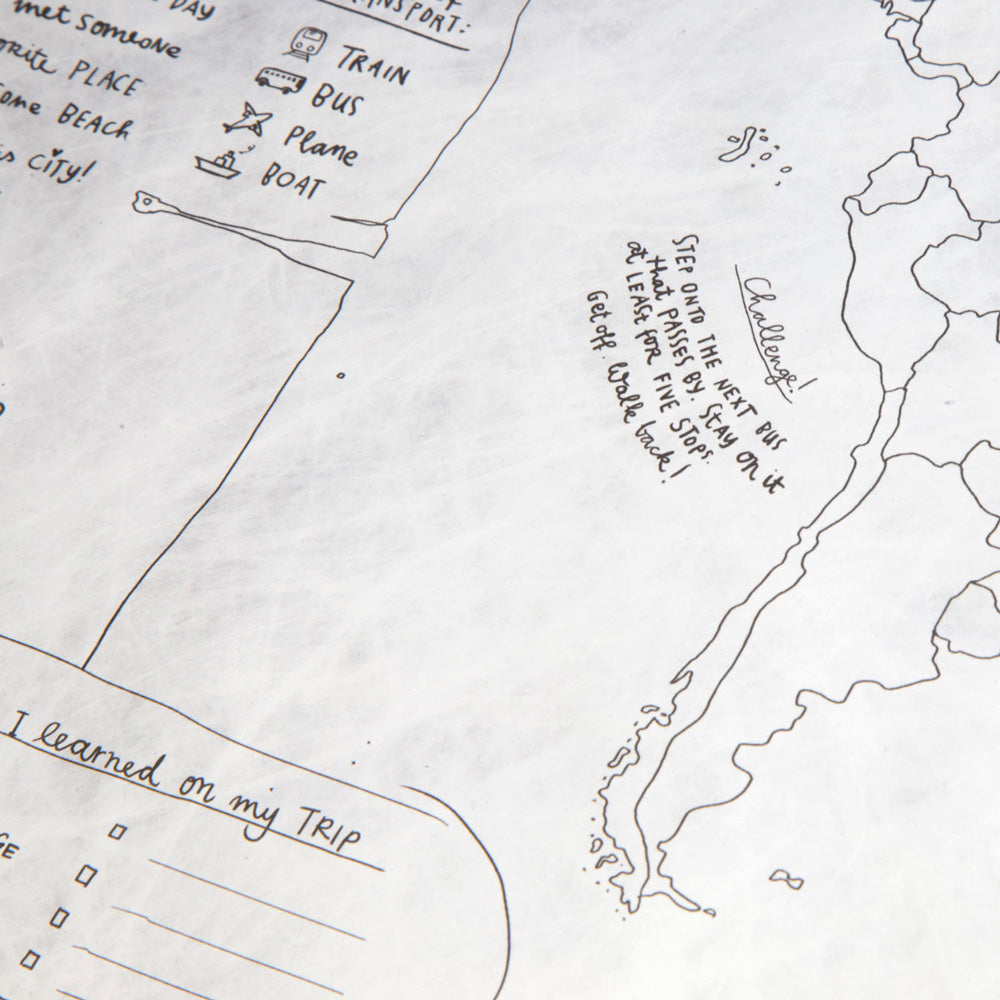 DAY
met someone
PLACE
BEACH
CITY!
TRAIN
BUS
Plane
BOAT
Challenge!
STEP ONTO THE NEXT BUS
that PASSES BY. STAY on it
at LEAST FOR FIVE STOPS.
Get off. Walk back!
I learned on my TRIP